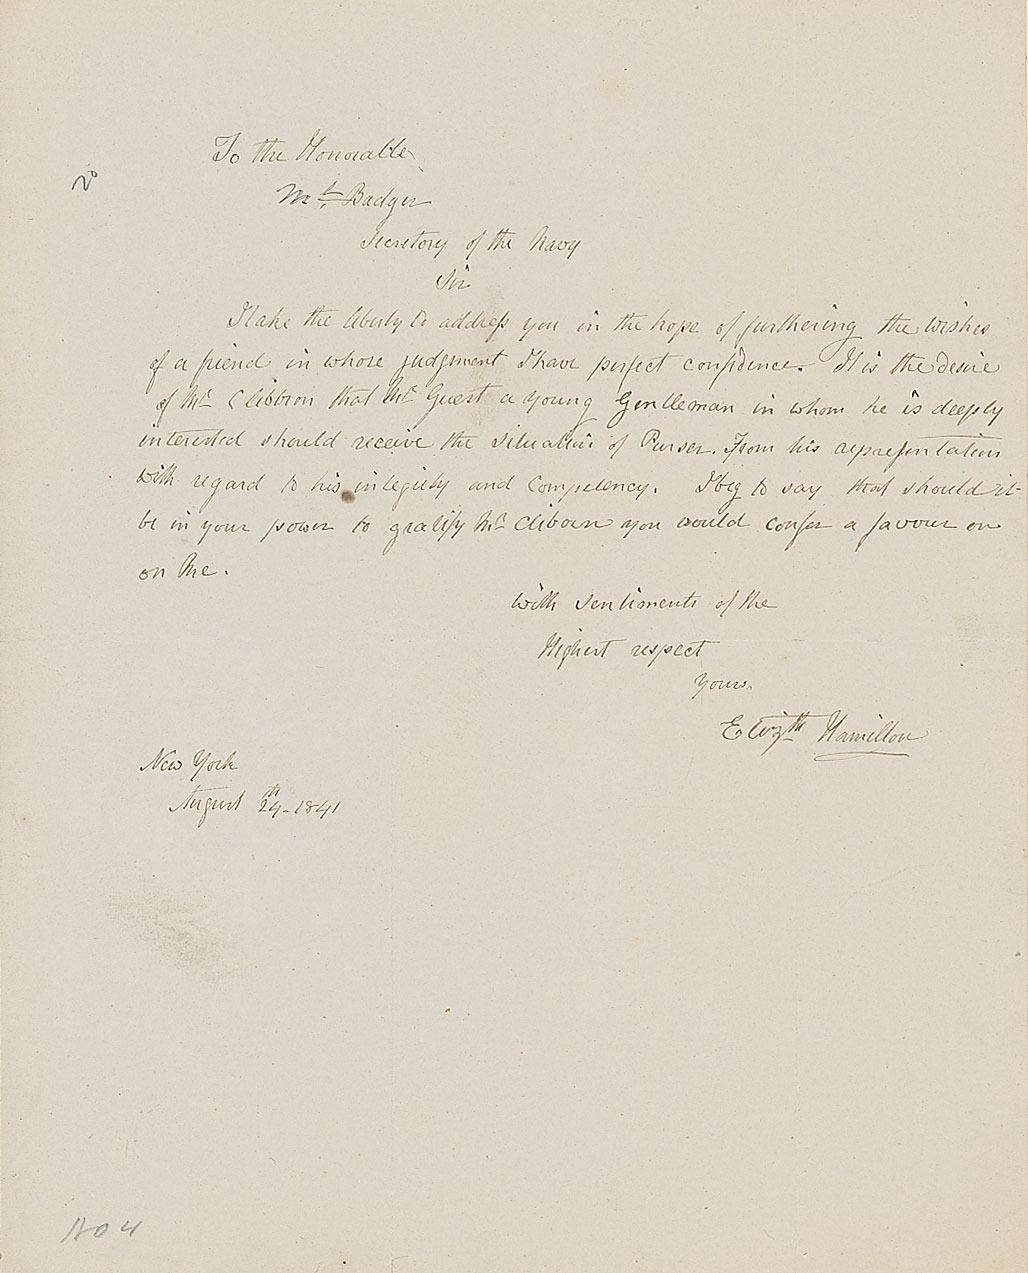 To the Honorable
20
Mr. Badger
Secretory of the Navy
Sir
I take the liberty to address you in the hope of furthering the wishes
of a friend in whose judgment I have perfect confidence. It is the desire
of Mr Clibborn that Mr Guest a young Gentleman in whom he is deeply
interested should receive the situation of Purser. From his representation
with regard to his integrity and Competency. I beg to say that should it
be in your power to gratify Mr Cliborn you would confer a favour on
on Me.
With sentiments of the
Highest respect
Yours.
Elizth Hamilton
New York
August 24th-1841
No 4